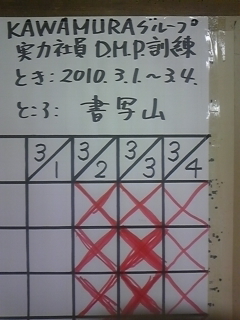 KAWAMURAグループ
実力社員 D.M.P.訓練
とき：2010.3.1.～3.4.
ところ： 書写山
3/1 3/2 3/3 3/4